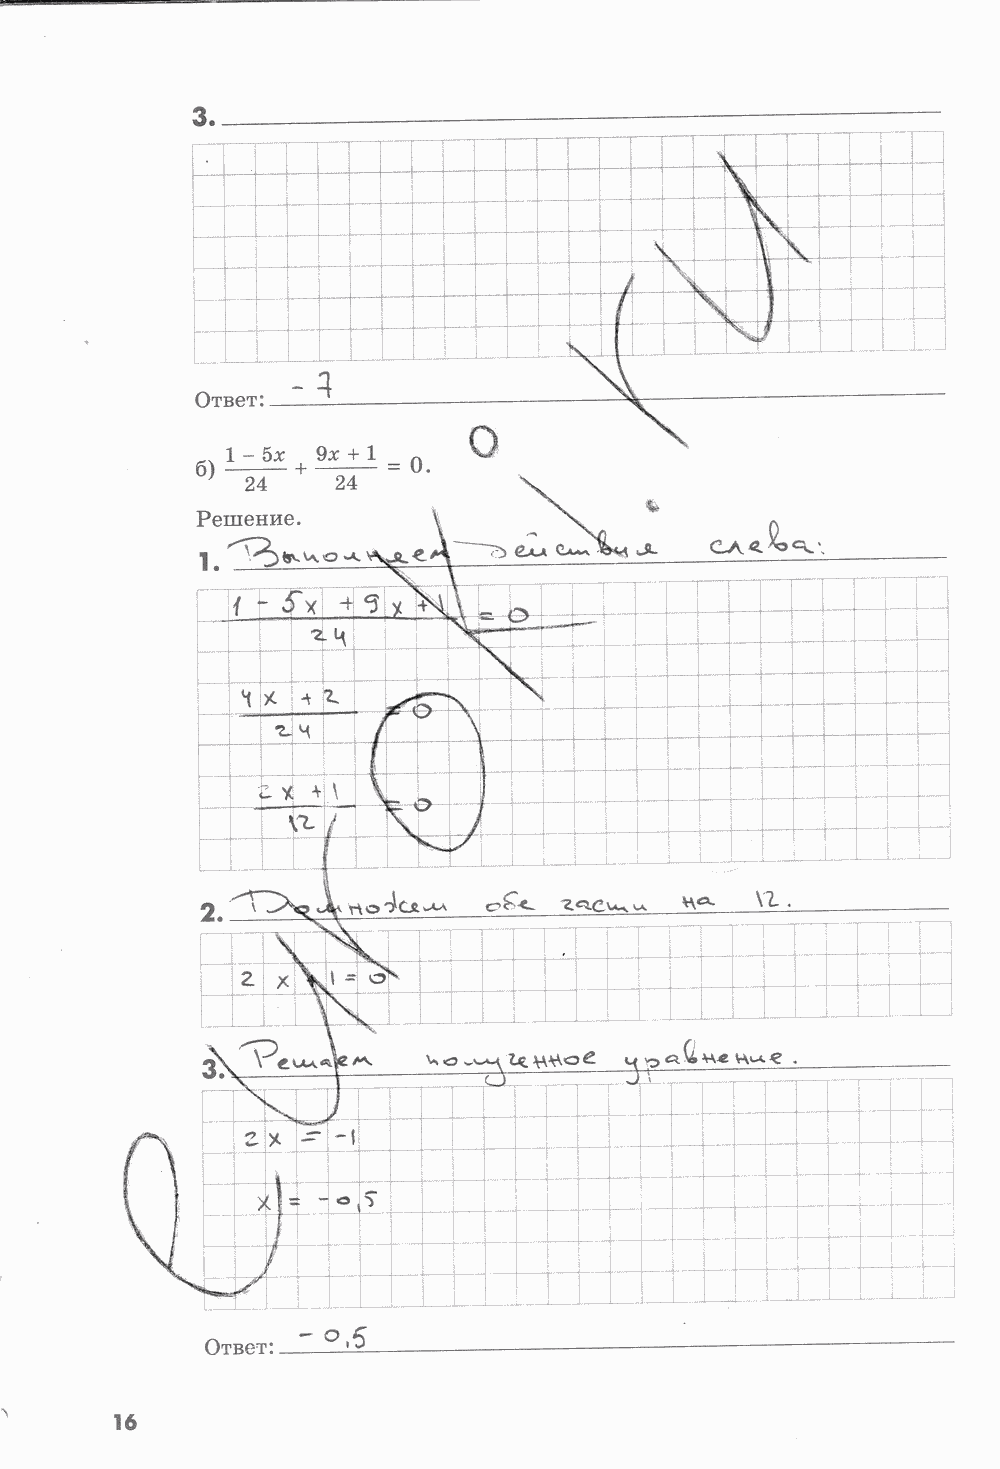 3.
Ответ: - 7
б) (1 - 5x)/24 + (9x + 1)/24 = 0.
Решение.
1. Выполняем действия слева:
(1 - 5x + 9x + 1)/24 = 0
(4x + 2)/24 = 0
(2x + 1)/12 = 0
2. Домножаем обе части на 12.
2x + 1 = 0
3. Решаем полученное уравнение.
2x = -1
x = -0,5
Ответ: -0,5
16